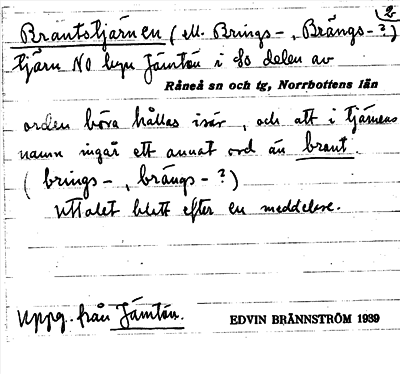 2
Brantstjärnen (ell. Brings-, Brängs-?)
tjärn NO byn Jämtön i so delen av
Råneå sn och tg, Norrbottens län
orden böra hållas isär, och att i tjärnens
namn ingår ett annat ord än brant.
(brings-, brängs-?)
Uttalet blott efter en meddelare.
Uppg. från Jämtön.
EDVIN BRÄNNSTRÖM 1939